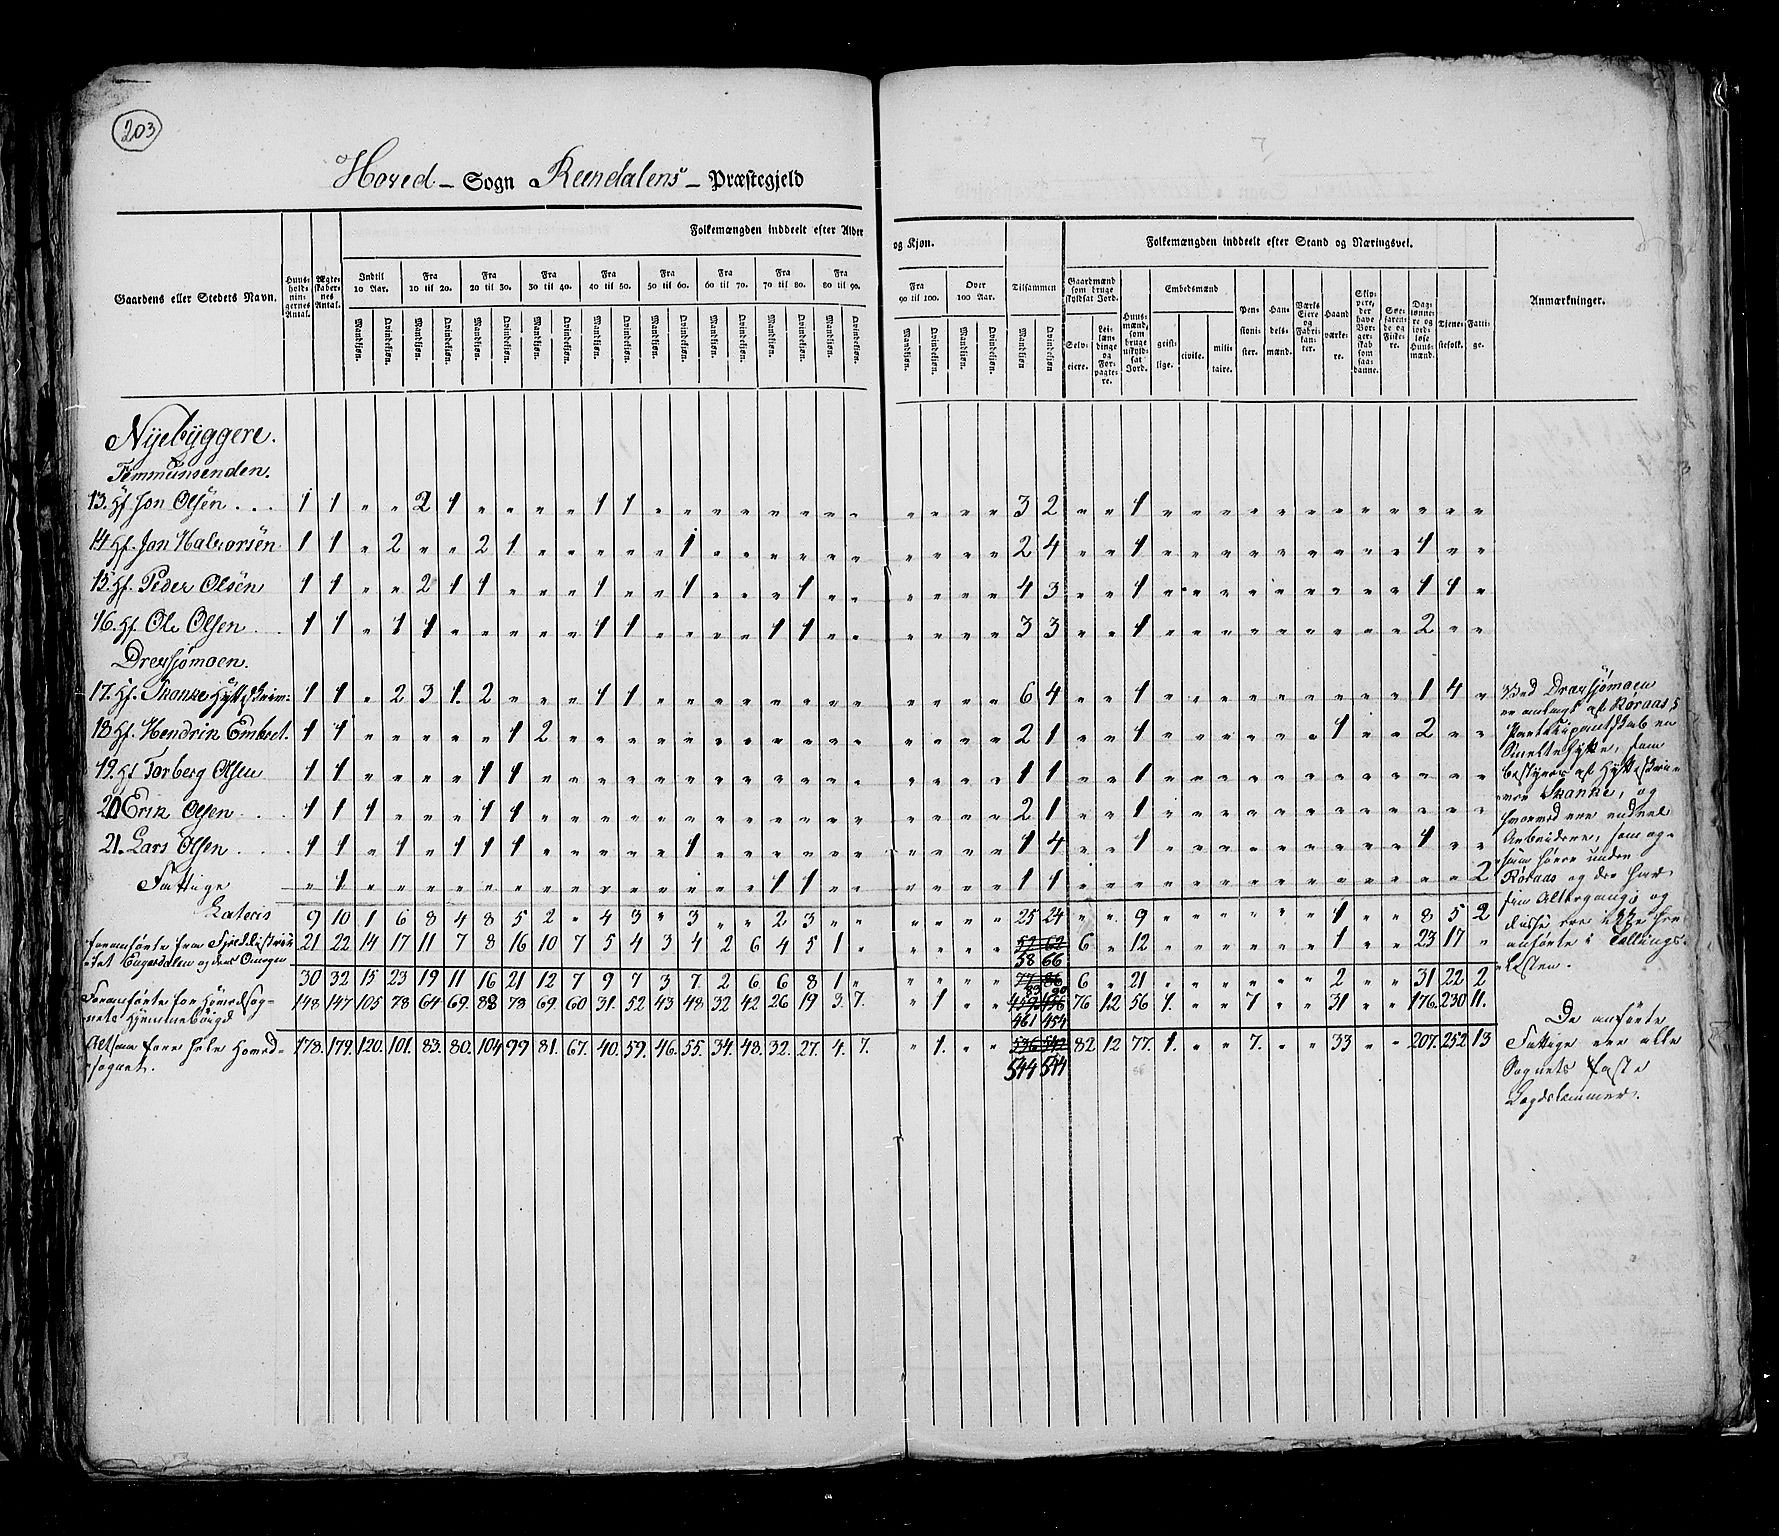 203
Hoved - Sogn Rendalens - Præstegjeld
Folkemængden inddeelt efter Alder og Kjøn.
Folkemængden inddeelt efter Stand og Næringsvei.
Gaardens eller Stedets Navn.
Huus-holdningernes Antal.
Ægteskabernes Antal.
Indtil 10 Aar.
Fra 10 til 20.
Fra 20 til 30.
Fra 30 til 40.
Fra 40 til 50.
Fra 50 til 60.
Fra 60 til 70.
Fra 70 til 80.
Fra 80 til 90.
Fra 90 til 100.
Over 100 Aar.
Tilsammen
Mandkjøn. Qvindekjøn.
Gaardmænd som bruge skyldsat Jord.
Selveiere.
Leilændinge og Forpagtere.
Huusmænd, som bruge uskyldsat Jord.
Embedsmænd
geistlige. civile. militaire.
Pensionister.
Handelsmænd.
Værks Eiere og Fabrikanter.
Haandværkere.
Skippere, der have Borgerskab som saadanne.
Søefarende og Fiskere.
Daglønnere og jordløse Huusmænd.
Tjenestefolk.
Fattige.
Anmærkninger.
Nÿebÿggere.
Femmunsenden.
13. Hf Jon Olsen . . . 1 1 " " 2 1 " " " " 1 1 " " " " " " " " " " " 3 2 " " 1 " " " " " " " " " " " "
14 Hf. Jon Halvorsen 1 1 " 2 " " 2 1 " " " " " 1 " " " " " " " " " " 2 4 " " 1 " " " " " " " " " 1 " "
15. Hf. Peder Olsen 1 1 " " 2 1 1 " " " 1 " " 1 " " " 1 " " " " " " 4 3 " " 1 " " " " " " " " " 1 1 "
16. Hf. Ole Olsen . . 1 1 " 1 1 " " " " " 1 1 " " " " 1 1 " " " " " " 3 3 " " 1 " " " " " " " " " 2 " "
Drevsjømoen.
17. Hf. Skanke Hytteskriv: 1 1 " 2 3 1. 2 " " " 1 1 " " " " " " " " " " " " 6 4 " " 1 " " " " " " " " " 1 4 "
18. Hf. Hendrik Embret. 1 1 " " " " " 1 2 " " " " " " " " " " " " " " " 2 1 " " 1 " " " " " " 1 " " 2 " "
19. Hf Torberg Olsen 1 1 " " " " 1 1 " " " " " " " " " " " " " " " " 1 1 " " 1 " " " " " " " " " " " "
20 Erik Olsen . . . 1 1 1 " " " 1 1 " " " " " " " " " " " " " " " " 2 1 " " 1 " " " " " " " " " " " "
21. Lars Olsen . . . . 1 1 " 1 " 1 1 1 " " " " " 1 " " " " " " " " " " 1 4 " " 1 " " " " " " " " " 1 " "
Fattige " 1 " " " " " " " " " " " " " " 1 1 " " " " " " 1 1 " " " " " " " " " " " " " " 2
Lateris 9 10 1 6 8 4 8 5 2 " 4 3 " 3 " " 2 3 " " " " " " 25 24 " " 9 " " " " " " 1 " " 8 5 2
21 22 14 17 11 7 8 16 10 7 5 4 3 4 2 6 4 5 1 " " " " " 57 62 6 " 12 " " " " " " 1 " " 23 17 "
58 66
30 32 15 23 19 11 16 21 12 7 9 7 3 7. 2 6 6 8 1 " " " " " 77 86 6 " 21 " " " " " " 2 " " 31 22 2
83 90
148 147 105 78 64 69. 88 78 69. 60 31. 52 43 48. 32 42 26 19 3. 7. " 1 " " 459 456 76 12 56 1. " " 7 " " 31 " " 176. 230 11.
461 454
178. 179. 120. 101. 83. 80. 104 99 81. 67. 40. 59. 46. 55. 34. 48. 32. 27. 4. 7. " 1. " " 536 542 82 12 77. 1. " " 7. " " 33 " " 207. 252 13
544 544
Ved Drevsjømoen
er anlagt af Røraas
Participantskab en
Smeltehytte, som
bestyres af Hytteskri-
ver Skanke, og
hvorved ere endeel
Arbeidere, som og-
saa høre under
Røraas og der har
sin Altergang, og
anførte i Tællings-
Listen.
De anførte
Fattige ere alle
Sognets faste
Lægdslemmer.